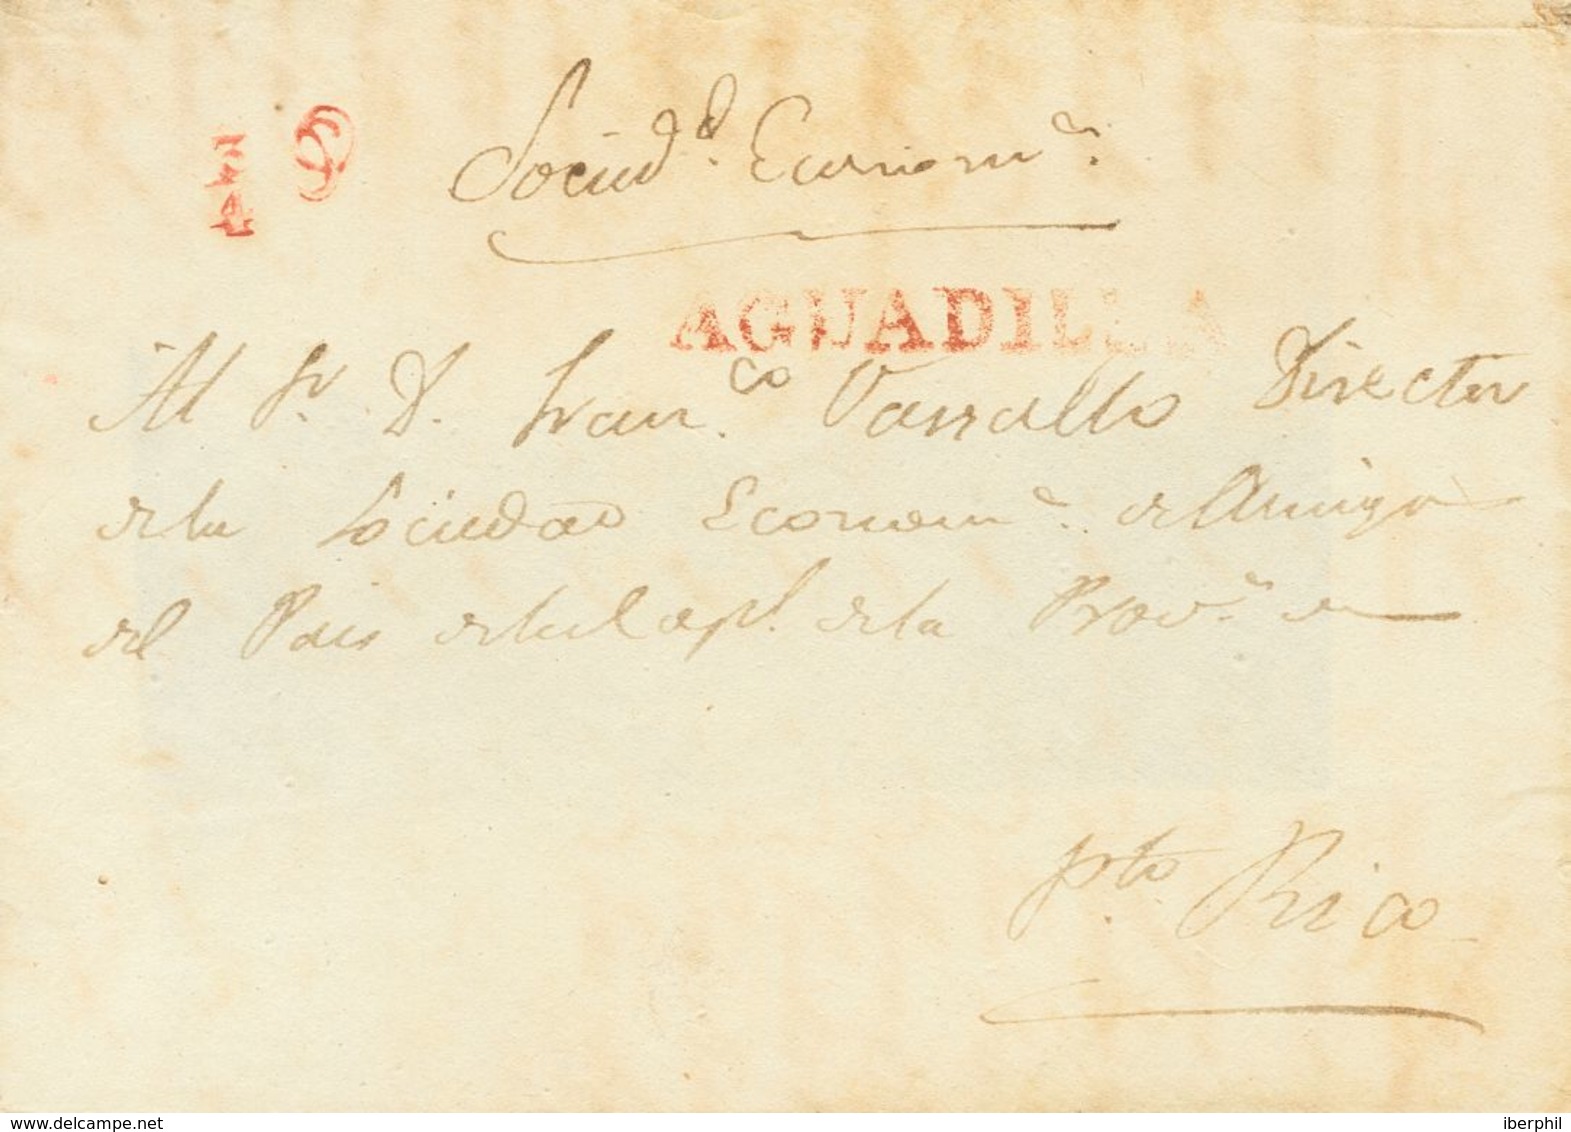 Socied.d Econom.a
AGUADILLA
Al Sr. D. Fran.co Vassallo Director
de la Sociedad Econom.a de Amigos
del Pais de la Capl. de la Prov.a de
Pto. Rico
delcampe.net
iberphil